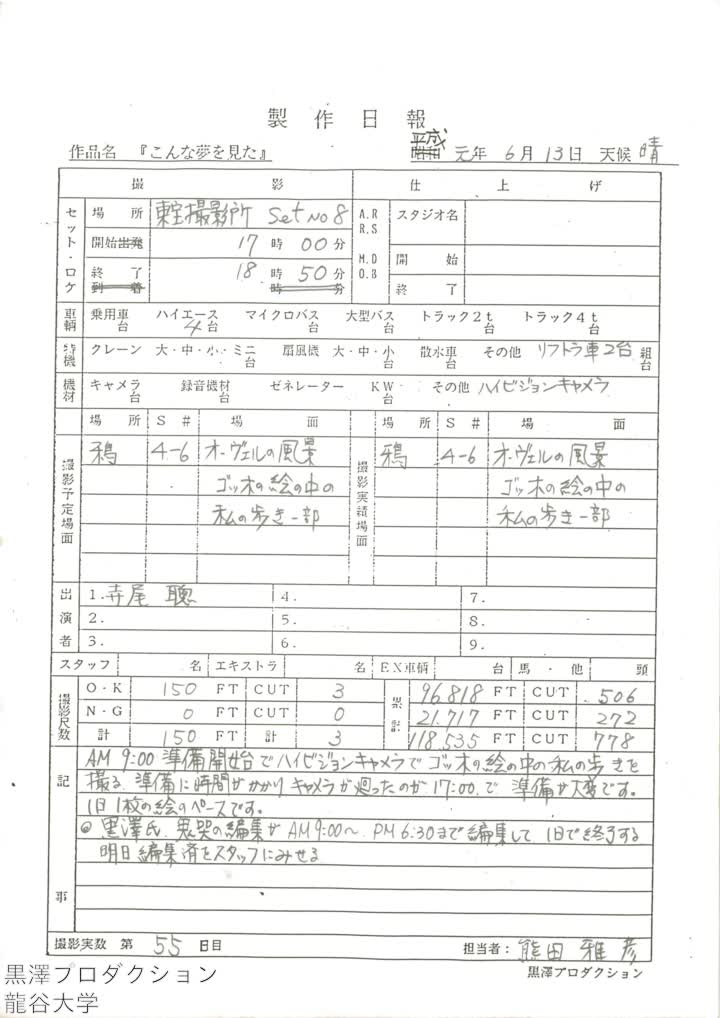 製作日報
作品名 『こんな夢を見た』 平成 昭和 元年 6月 13日 天候 晴
撮影 仕上げ
セット・ロケ 場所 東宝撮影所 Set No 8 A.R R.S スタジオ名
開始 出発 17時 00分 M.D D.B 開始
終了 到着 18時 50分 時 分 終了
車輌 乗用車 台 ハイエース 4台 マイクロバス 台 大型バス 台 トラック2t 台 トラック4t 台
特機 クレーン 大・中・小・ミニ 台 扇風機 大・中・小 台 散水車 台 その他 リフトラ車2台 組 台
機材 キャメラ 台 録音機材 ゼネレーター KW 台 その他 ハイビジョンキャメラ
場所 S# 場面 場所 S# 場面
撮影予定場面 鴉 4-6 オーヴェルの風景 撮影実績場面 鴉 4-6 オーヴェルの風景
ゴッホの絵の中の ゴッホの絵の中の
私の歩き一部 私の歩き一部
出演者 1.寺尾 聰 4. 7.
2. 5. 8.
3. 6. 9.
スタッフ 名 エキストラ 名 EX車輌 台 馬・他 頭
撮影尺数 O-K 150 FT CUT 3 累計 96.818 FT CUT 506
N-G 0 FT CUT 0 21.717 FT CUT 272
計 150 FT 計 3 118.535 FT CUT 778
記事 AM 9:00 準備開始でハイビジョンキャメラでゴッホの絵の中の私の歩きを
撮る.準備に時間がかかりキャメラが廻ったのが17:00.で 準備が大変です。
1日1枚の絵のペースです。
◎ 黒澤氏.鬼哭の編集がAM9:00〜.PM6:30まで編集して 1日で終了する
明日編集済をスタッフにみせる
撮影実数 第 55 日目 担当者: 熊田 雅彦
黒澤プロダクション
黒澤プロダクション
龍谷大学